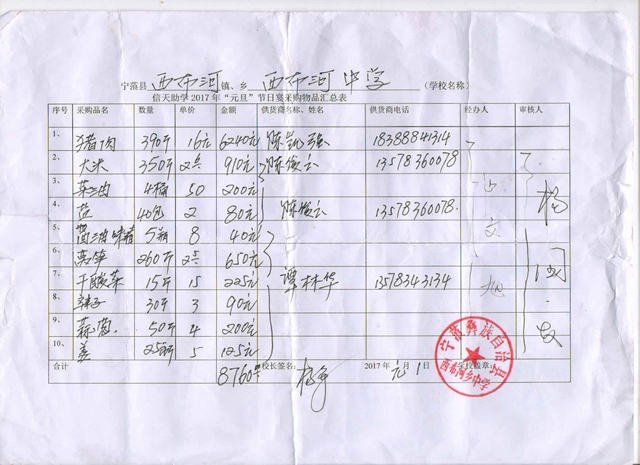 宁蒗县 西布河 镇、乡 西布河中学 （学校名称）
信天助学2017年“元旦”节日宴采购物品汇总表
序号 采购品名 数量 单价 金额 供货商名称、姓名 供货商电话 经办人 审核人
1、 猪肉 390斤 16元 6240元 陈凯强 18388841314
2、 大米 350斤 2.6 910元 13578360078
3、 菜油 4桶 50 200元
4、 盐 40包 2 80元 13578360078
5、 酱油味精 5瓶 8 40元
6、 260斤 650元
7、 干酸菜 15斤 15 225元 谭林华 13578343134
8、 辣子 30斤 3 90元
9、 蒜、葱 50斤 4 200元
10、 姜 25斤 5 125元
合计 8760元 校长签名： 2017年 元 月 1 日 学校盖章：
宁蒗彝族自治县
西布河乡中学